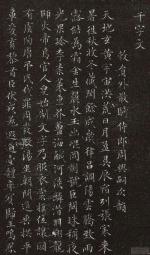 千字文
敕員外散騎侍郎周興嗣次韻
天地玄黃宇宙洪荒日月盈昃辰宿列張寒來
暑往秋收冬藏閏餘成歲律呂調陽雲騰致雨
露結為霜金生麗水玉出崑岡劍號巨闕珠稱夜
光果珍李柰菜重芥薑海鹹河淡鱗潛羽翔龍
師火帝鳥官人皇始制文字乃服衣裳推位讓國
有虞陶唐弔民伐罪周發殷湯坐朝問道垂拱平
章愛育黎首臣伏戎羌遐邇壹體率賓歸王鳴鳳